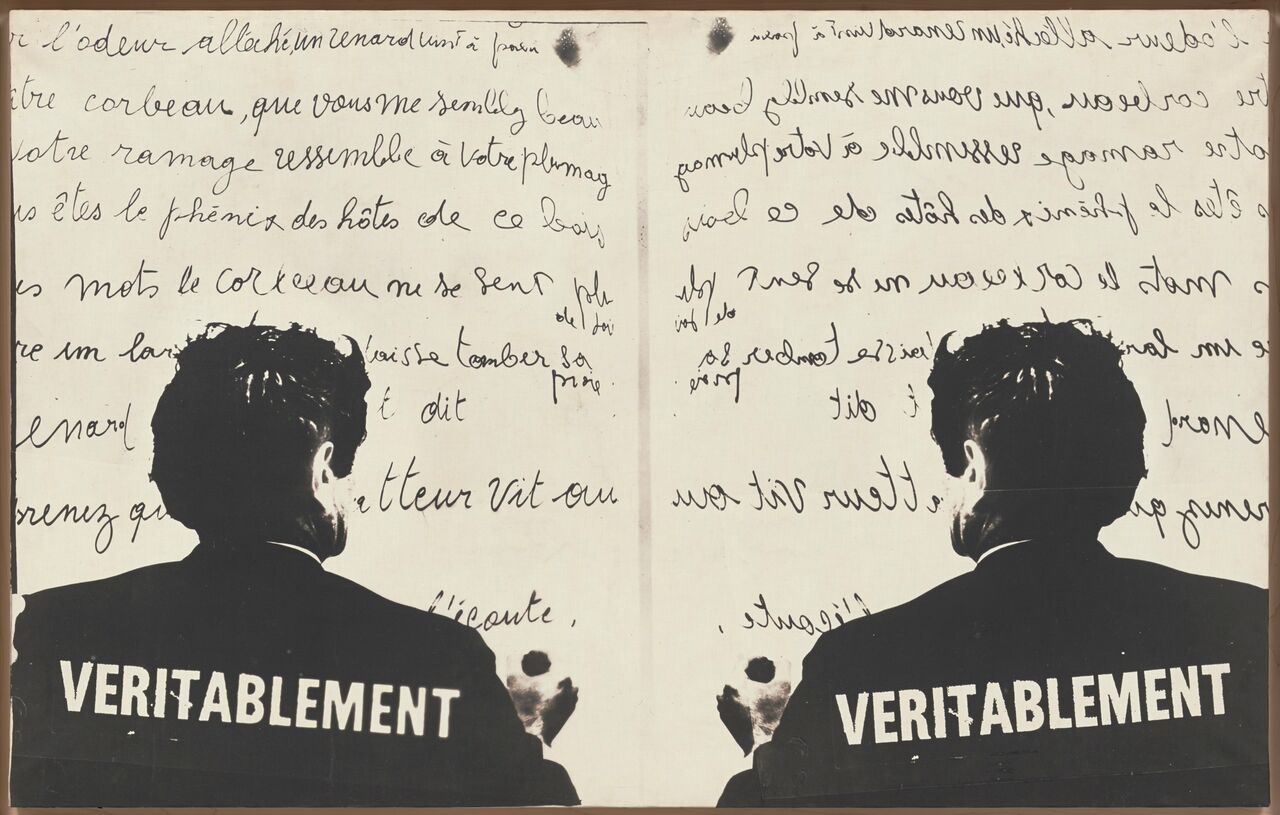 r l'odeur alléché, un renard vint à peu
tre corbeau, que vous me semblez beau
votre ramage ressemble à votre plumag
us êtes le phénix des hôtes de ce bois
es mots le corbeau ne se sent plu
de joi
re un lar laisse tomber sa
proie
enard t dit
prenez qu atteur vit au
l'écoute,
VERITABLEMENT
VERITABLEMENT